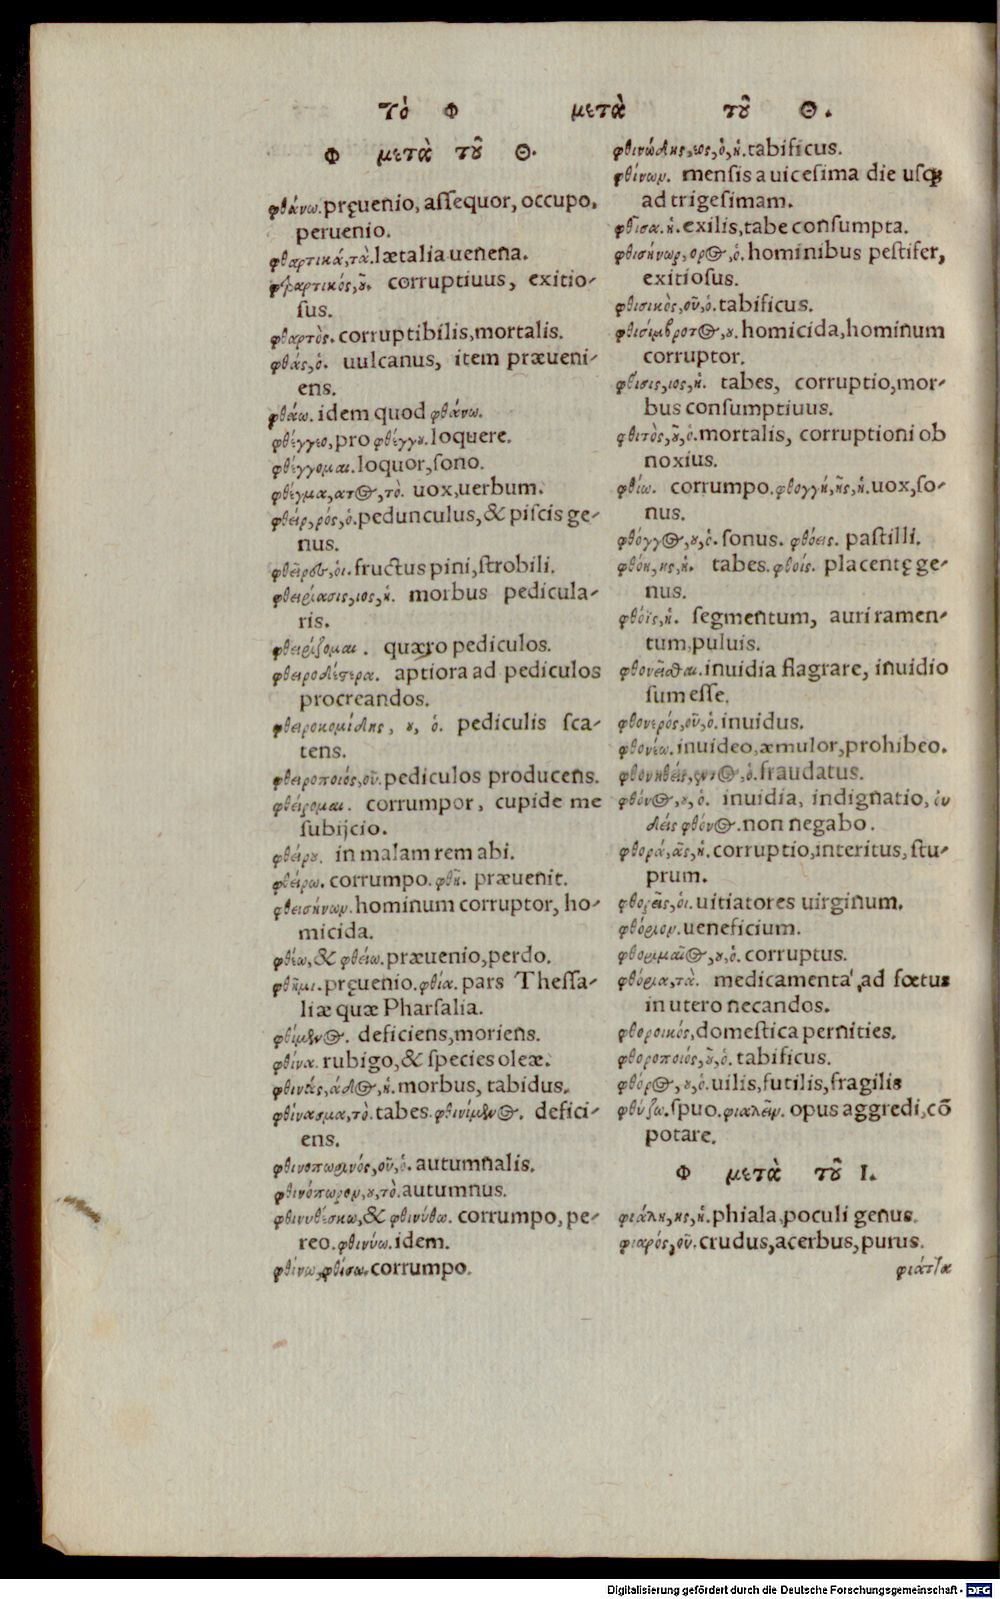 Τὸ Φ μετὰ τοῦ Θ.
Φ μετὰ τοῦ Θ.
φθάνω. pręuenio, aſſequor, occupo,
peruenio.
φθαρτικά, τὰ. lætalia uenena.
φθαρτικός, οῦ. corruptiuus, exitio-
ſus.
φθαρτὸς. corruptibilis, mortalis.
φθάς, ὁ. uulcanus, item præueni-
ens.
φθάω. idem quod φθάνω.
φθέγγεο, pro φθέγγου. loquere.
φθέγγομαι. loquor, ſono.
φθέγμα, ατος, τὸ. uox, uerbum.
φθείρ, ρός, ὁ. pedunculus, & piſcis ge-
nus.
φθεῖρες, οἱ. fructus pini, ſtrobili.
φθειρίασις, ιος, ἡ. morbus pedicula-
ris.
φθειρίζομαι. quæro pediculos.
φθειροδέστερα. aptiora ad pediculos
procreandos.
φθειροκομίδης, ου, ὁ. pediculis ſca-
tens.
φθειροποιός, οῦ. pediculos producens.
φθείρομαι. corrumpor, cupide me
ſubijcio.
φθείρου. in malam rem abi.
φθείρω. corrumpo. φθῆ. præuenit.
φθεισήνωρ. hominum corruptor, ho-
micida.
φθέω, & φθείω. præuenio, perdo.
φθῆμι. pręuenio. φθία. pars Theſſa-
liæ quæ Pharſalia.
φθίμενος. deficiens, moriens.
φθίνα. rubigo, & ſpecies oleæ.
φθινὰς, άδος, ἡ. morbus, tabidus.
φθίνασμα, τὸ. tabes. φθινόμενος. defici-
ens.
φθινοπωρινός, οῦ, ὁ. autumnalis.
φθινόπωρον, ου, τὸ. autumnus.
φθινυθέσκω, & φθινύθω. corrumpo, pe-
reo. φθινύω. idem.
φθίνω, φθίσω. corrumpo.
φθινώδης, εος, ὁ, ἡ. tabificus.
φθίνων. menſis a uiceſima die uſcꝫ
ad trigeſimam.
φθῖσα. ἡ. exilis, tabe conſumpta.
φθισήνωρ, ορος, ὁ. hominibus peſtifer,
exitioſus.
φθισικὸς, οῦ, ὁ. tabificus.
φθισίμβροτος, ου. homicida, hominum
corruptor.
φθίσις, ιος, ἡ. tabes, corruptio, mor-
bus conſumptiuus.
φθιτὸς, οῦ, ὁ. mortalis, corruptioni ob
noxius.
φθίω. corrumpo. φθογγή, ῆς, ἡ. uox, ſo-
nus.
φθόγγος, ου, ὁ. ſonus. φθόεις. paſtilli.
φθόη, ης, ἡ. tabes. φθοίς. placentę ge-
nus.
φθόϊς, ἡ. ſegmentum, auri ramen-
tum, puluis.
φθονεῖσθαι. inuidia flagrare, inuidio
ſum eſſe.
φθονερός, οῦ, ὁ. inuidus.
φθονέω. inuideo, æmulor, prohibeo.
φθονηθείς, έντος, ὁ. fraudatus.
φθόνος, ου, ὁ. inuidia, indignatio, οὐ
δεὶς φθόνος. non negabo.
φθορά, ᾶς, ἡ. corruptio, interitus, ſtu-
prum.
φθορεῖς, οἱ. uitiatores uirginum.
φθόριον. ueneficium.
φθοριμαῖος, ου, ὁ. corruptus.
φθόρια, τὰ. medicamenta ad fœtus
in utero necandos.
φθοροικός, domeſtica pernities.
φθοροποιός, οῦ, ὁ. tabificus.
φθόρος, ου, ὁ. uilis, futilis, fragilis
φθύζω. ſpuo. φιαλεῖν. opus aggredi, cō
potare.
Φ μετὰ τοῦ Ι.
φιάλη, ης, ἡ. phiala, poculi genus.
φιαρός, οῦ. crudus, acerbus, purus.
Digitalisierung gefördert durch die Deutsche Forschungsgemeinschaft - DFG